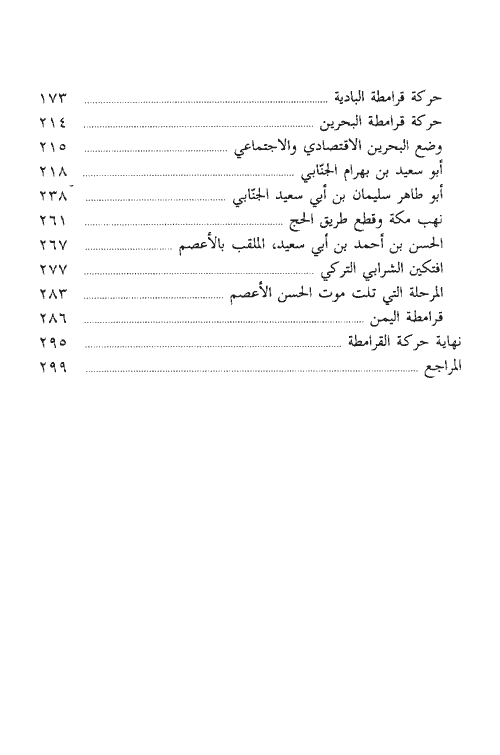 حركة قرامطة البادية ........ ١٧٣
حركة قرامطة البحرين ........ ٢١٤
وضع البحرين الاقتصادي والاجتماعي ........ ٢١٥
أبو سعيد بن بهرام الجنّابي ........ ٢١٨
أبو طاهر سليمان بن أبي سعيد الجنّابي ........ ٢٣٨
نهب مكة وقطع طريق الحج ........ ٢٦١
الحسن بن أحمد بن أبي سعيد، الملقب بالأعصم ........ ٢٦٧
افتكين الشرابي التركي ........ ٢٧٧
المرحلة التي تلت موت الحسن الأعصم ........ ٢٨٣
قرامطة اليمن ........ ٢٨٦
نهاية حركة القرامطة ........ ٢٩٥
المراجع ........ ٢٩٩